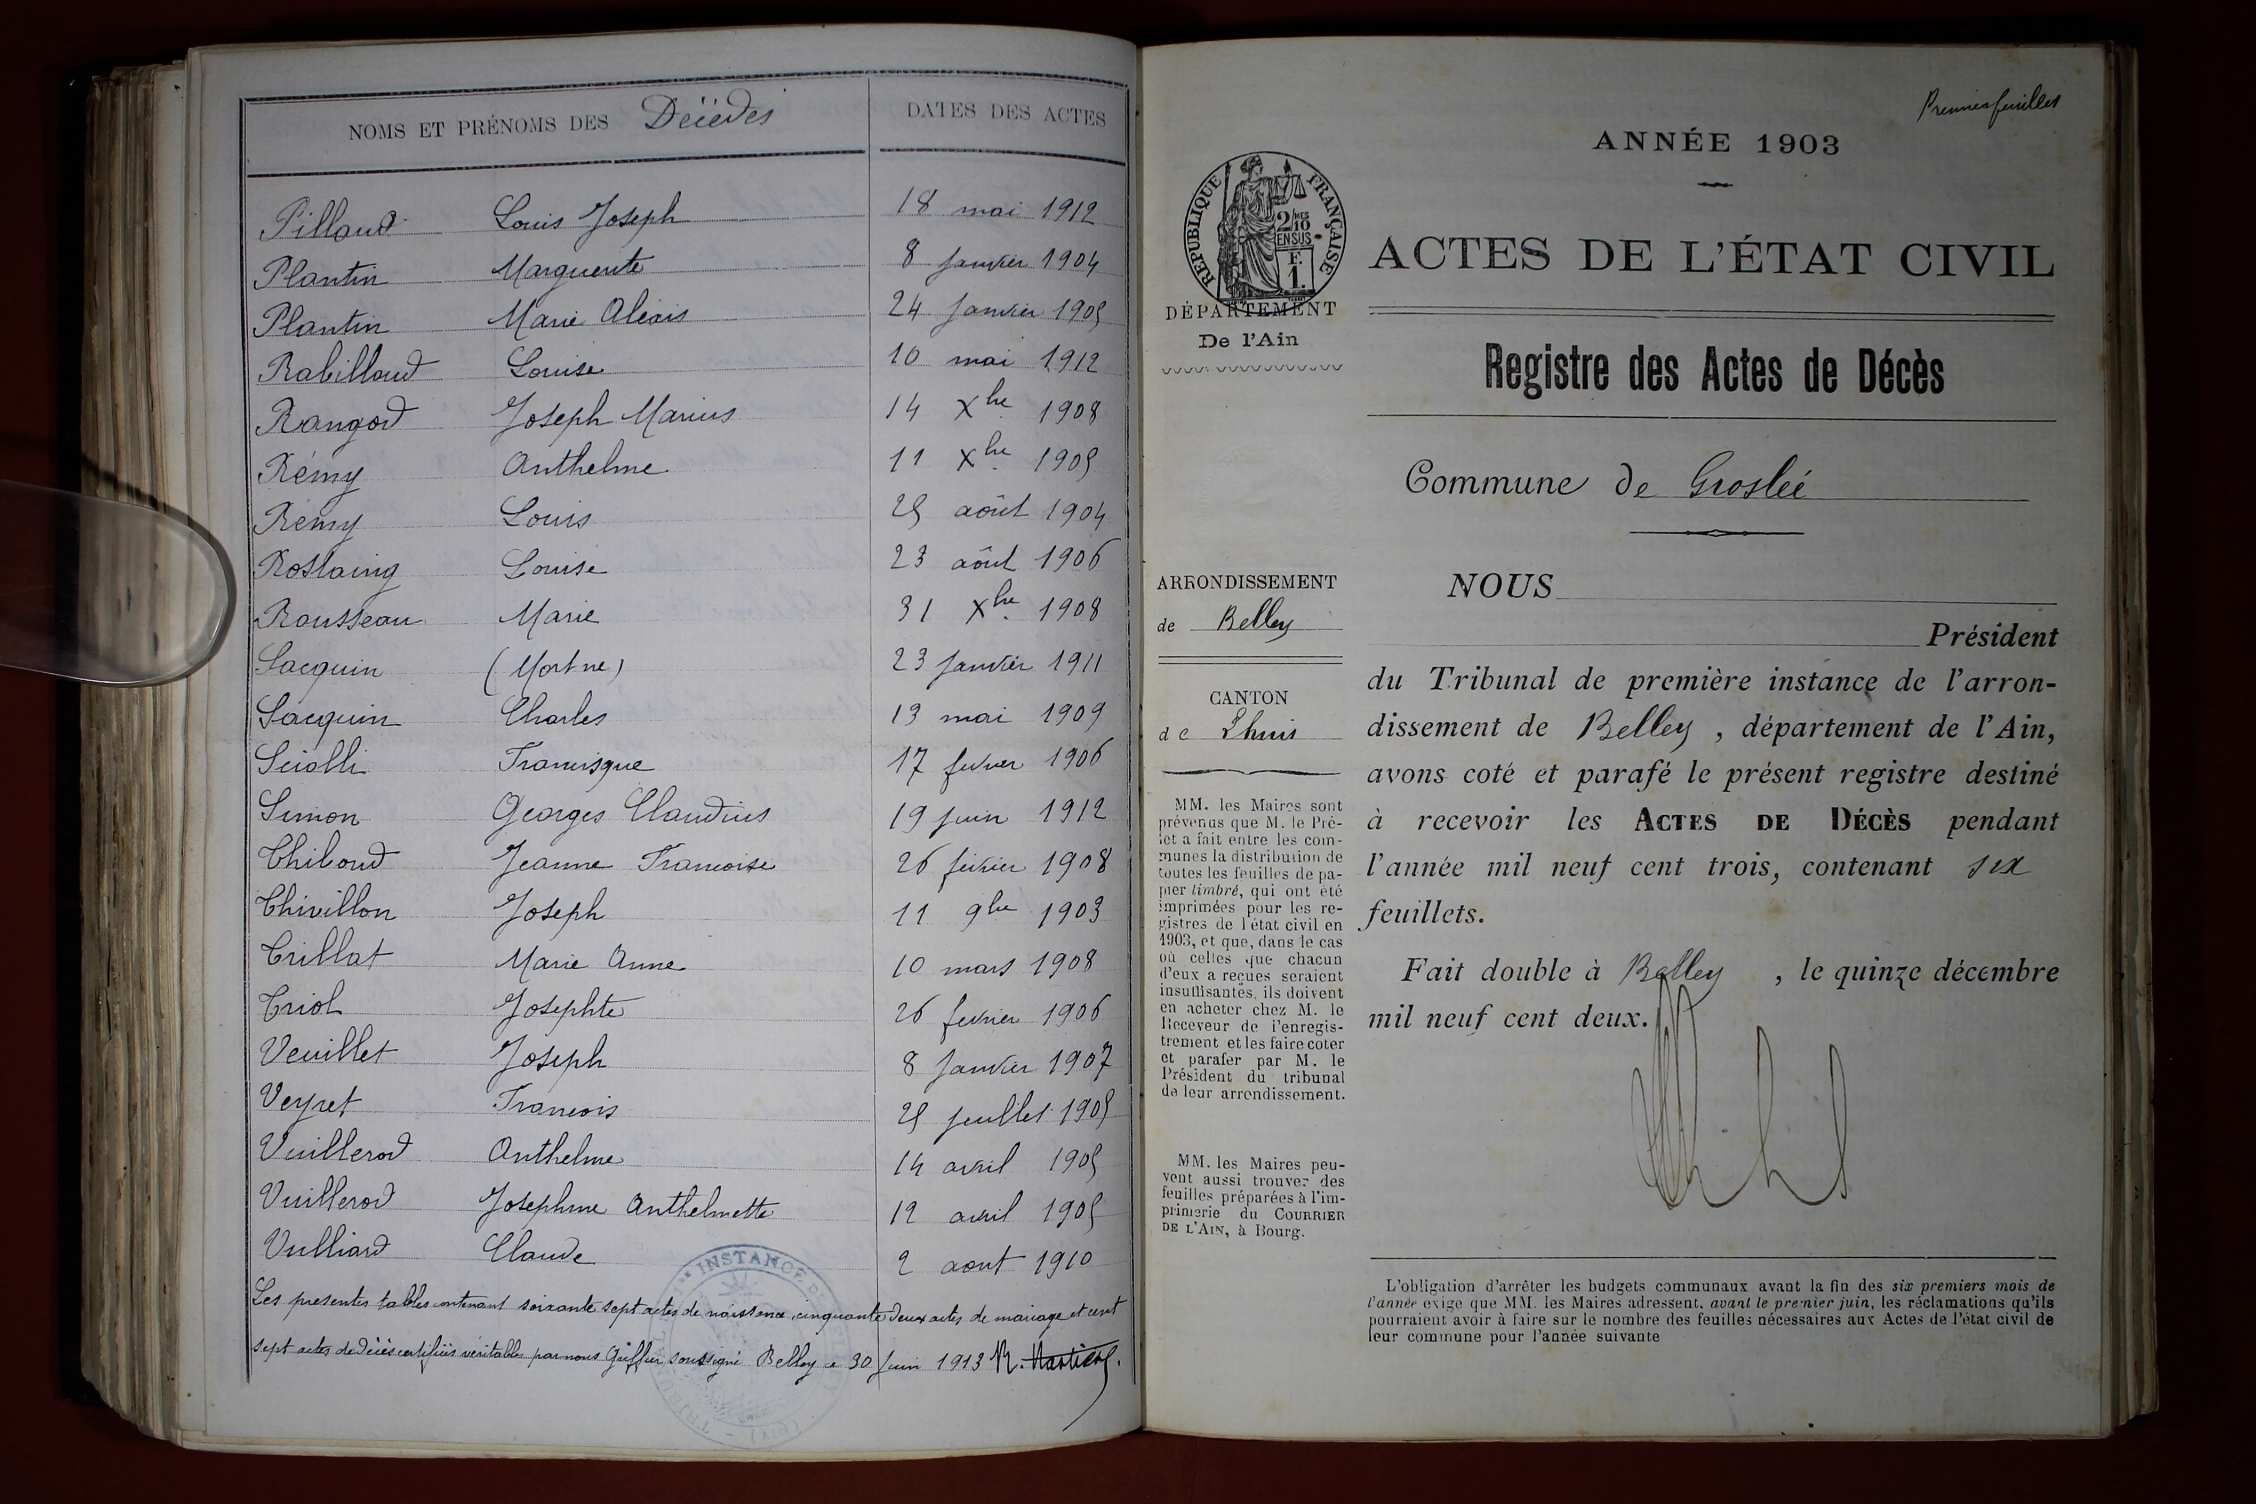 NOMS ET PRÉNOMS DES Décédés DATES DES ACTES
Pillaud Louis Joseph 18 mai 1912
Plantin Marguerite 8 Janvier 1904
Plantin Marie Alexis 24 Janvier 1905
Rabilloud Louise 10 mai 1912
Rangod Joseph Marius 14 Xbre 1908
Rémy Anthelme 11 Xbre 1905
Rémy Louis 25 août 1904
Rostaing Louise 23 août 1906
Rousseau Marie 31 Xbre 1908
Sacquin (Mort né) 23 Janvier 1911
Sacquin Charles 13 mai 1909
Sciolli Francisque 17 fevrier 1906
Simon Georges Claudius 19 Juin 1912
Thiboud Jeanne Francoise 26 février 1908
Thivillon Joseph 11 9bre 1903
Trillat Marie Anne 10 mars 1908
Triol Josephte 26 fevrier 1906
Veuillet Joseph 8 Janvier 1907
Veyret Francois 25 Juillet 1905
Vuillerod Anthelme 14 avril 1905
Vuillerod Josephine Anthelmette 12 avril 1905
Vulliard Claude 2 aout 1910
Les presentes tables contenant soixante sept actes de naissance, cinquante deux actes de mariage et cent
sept actes de décès certifiées véritables par nous Greffier soussigné Belley le 30 Juin 1913
INSTANCE
Premier feuillet
ANNÉE 1903
RÉPUBLIQUE FRANÇAISE
2/10MES
EN SUS
F.
1.
ACTES DE L'ÉTAT CIVIL
DÉPARTEMENT
De l'Ain
Registre des Actes de Décès
Commune de Groslée
ARRONDISSEMENT
de Belley
CANTON
de Lhuis
MM. les Maires sont
prévenus que M. le Pré-
fet a fait entre les com-
munes la distribution de
toutes les feuilles de pa-
pier timbré, qui ont été
imprimées pour les re-
gistres de l'état civil en
1903, et que, dans le cas
où celles que chacun
d'eux a reçues seraient
insuffisantes, ils doivent
en acheter chez M. le
Receveur de l'enregis-
trement et les faire coter
et parafer par M. le
Président du tribunal
de leur arrondissement.
MM. les Maires peu-
vent aussi trouver des
feuilles préparées à l'im-
primerie du COURRIER
DE L'AIN, à Bourg.
NOUS
Président
du Tribunal de première instance de l'arron-
dissement de Belley, département de l'Ain,
avons coté et parafé le présent registre destiné
à recevoir les ACTES DE DÉCÈS pendant
l'année mil neuf cent trois, contenant six
feuillets.
Fait double à Belley, le quinze décembre
mil neuf cent deux.
L'obligation d'arrêter les budgets communaux avant la fin des six premiers mois de
l'année exige que MM. les Maires adressent, avant le premier juin, les réclamations qu'ils
pourraient avoir à faire sur le nombre des feuilles nécessaires aux Actes de l'état civil de
leur commune pour l'année suivante